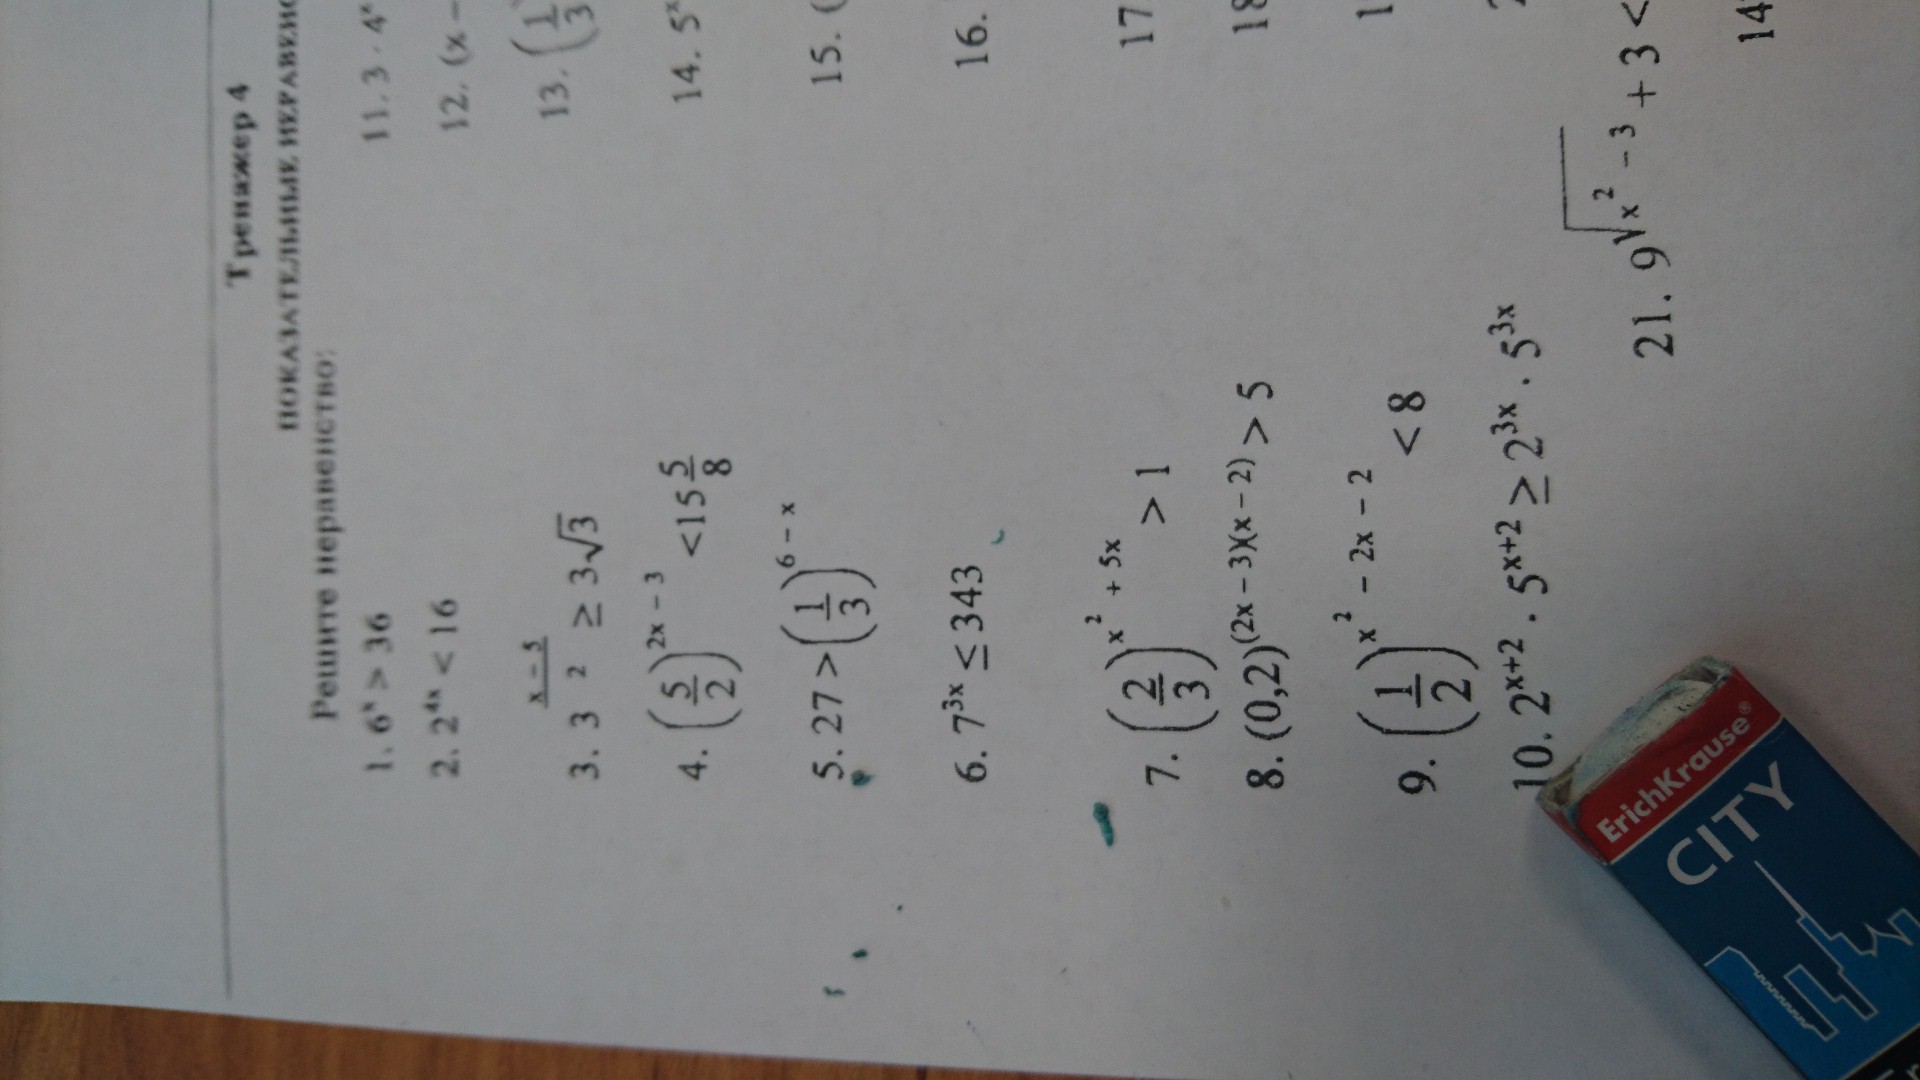 Тренажер 4
ПОКАЗАТЕЛЬНЫЕ НЕРАВЕНС
Решите неравенство:
1. 6ˣ > 36
2. 2⁴ˣ < 16
3. 3^((x – 5)/2) ≥ 3√3
4. (5/2)^(2x – 3) < 15 5/8
5. 27 > (1/3)^(6 – x)
6. 7³ˣ ≤ 343
7. (2/3)^(x² + 5x) > 1
8. (0,2)^((2x – 3)(x – 2)) > 5
9. (1/2)^(x² – 2x – 2) < 8
10. 2ˣ⁺² · 5ˣ⁺² ≥ 2³ˣ · 5³ˣ
11. 3 · 4ˣ
12. (x –
13. (1/3)
14. 5ˣ
15. (
16.
17
18
1
2
21. 9^√(x² – 3) + 3 <
14
ErichKrause®
CITY